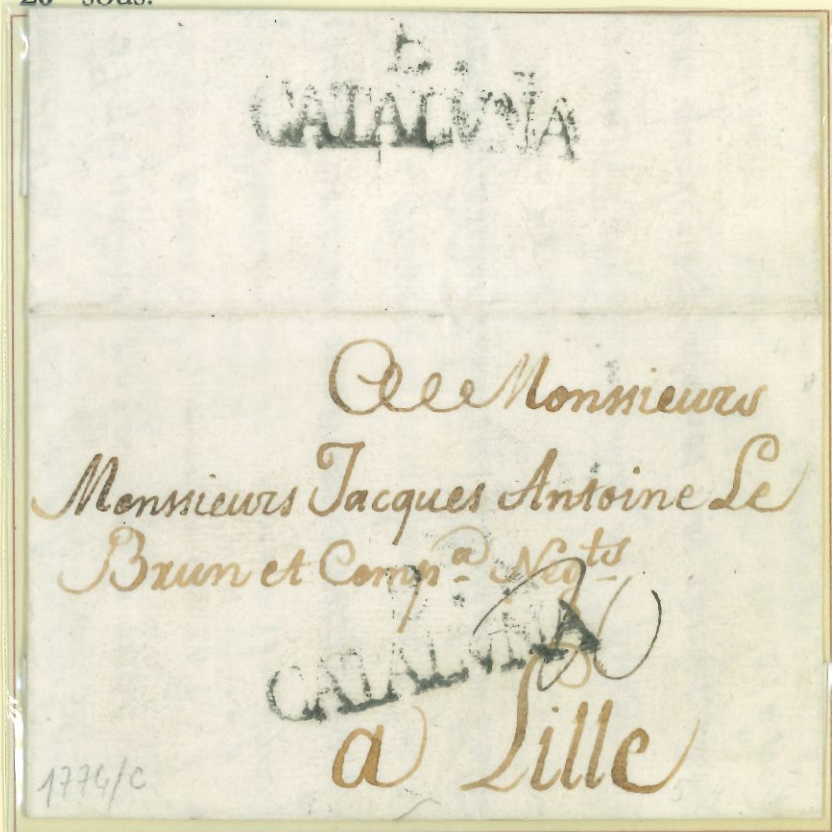 20 sous.
B.
CATALUÑA
A Monssieurs
Monssieurs Jacques Antoine Le
Brun et Comp.ª Neg.ts
CATALUÑA
a Lille
1774/C